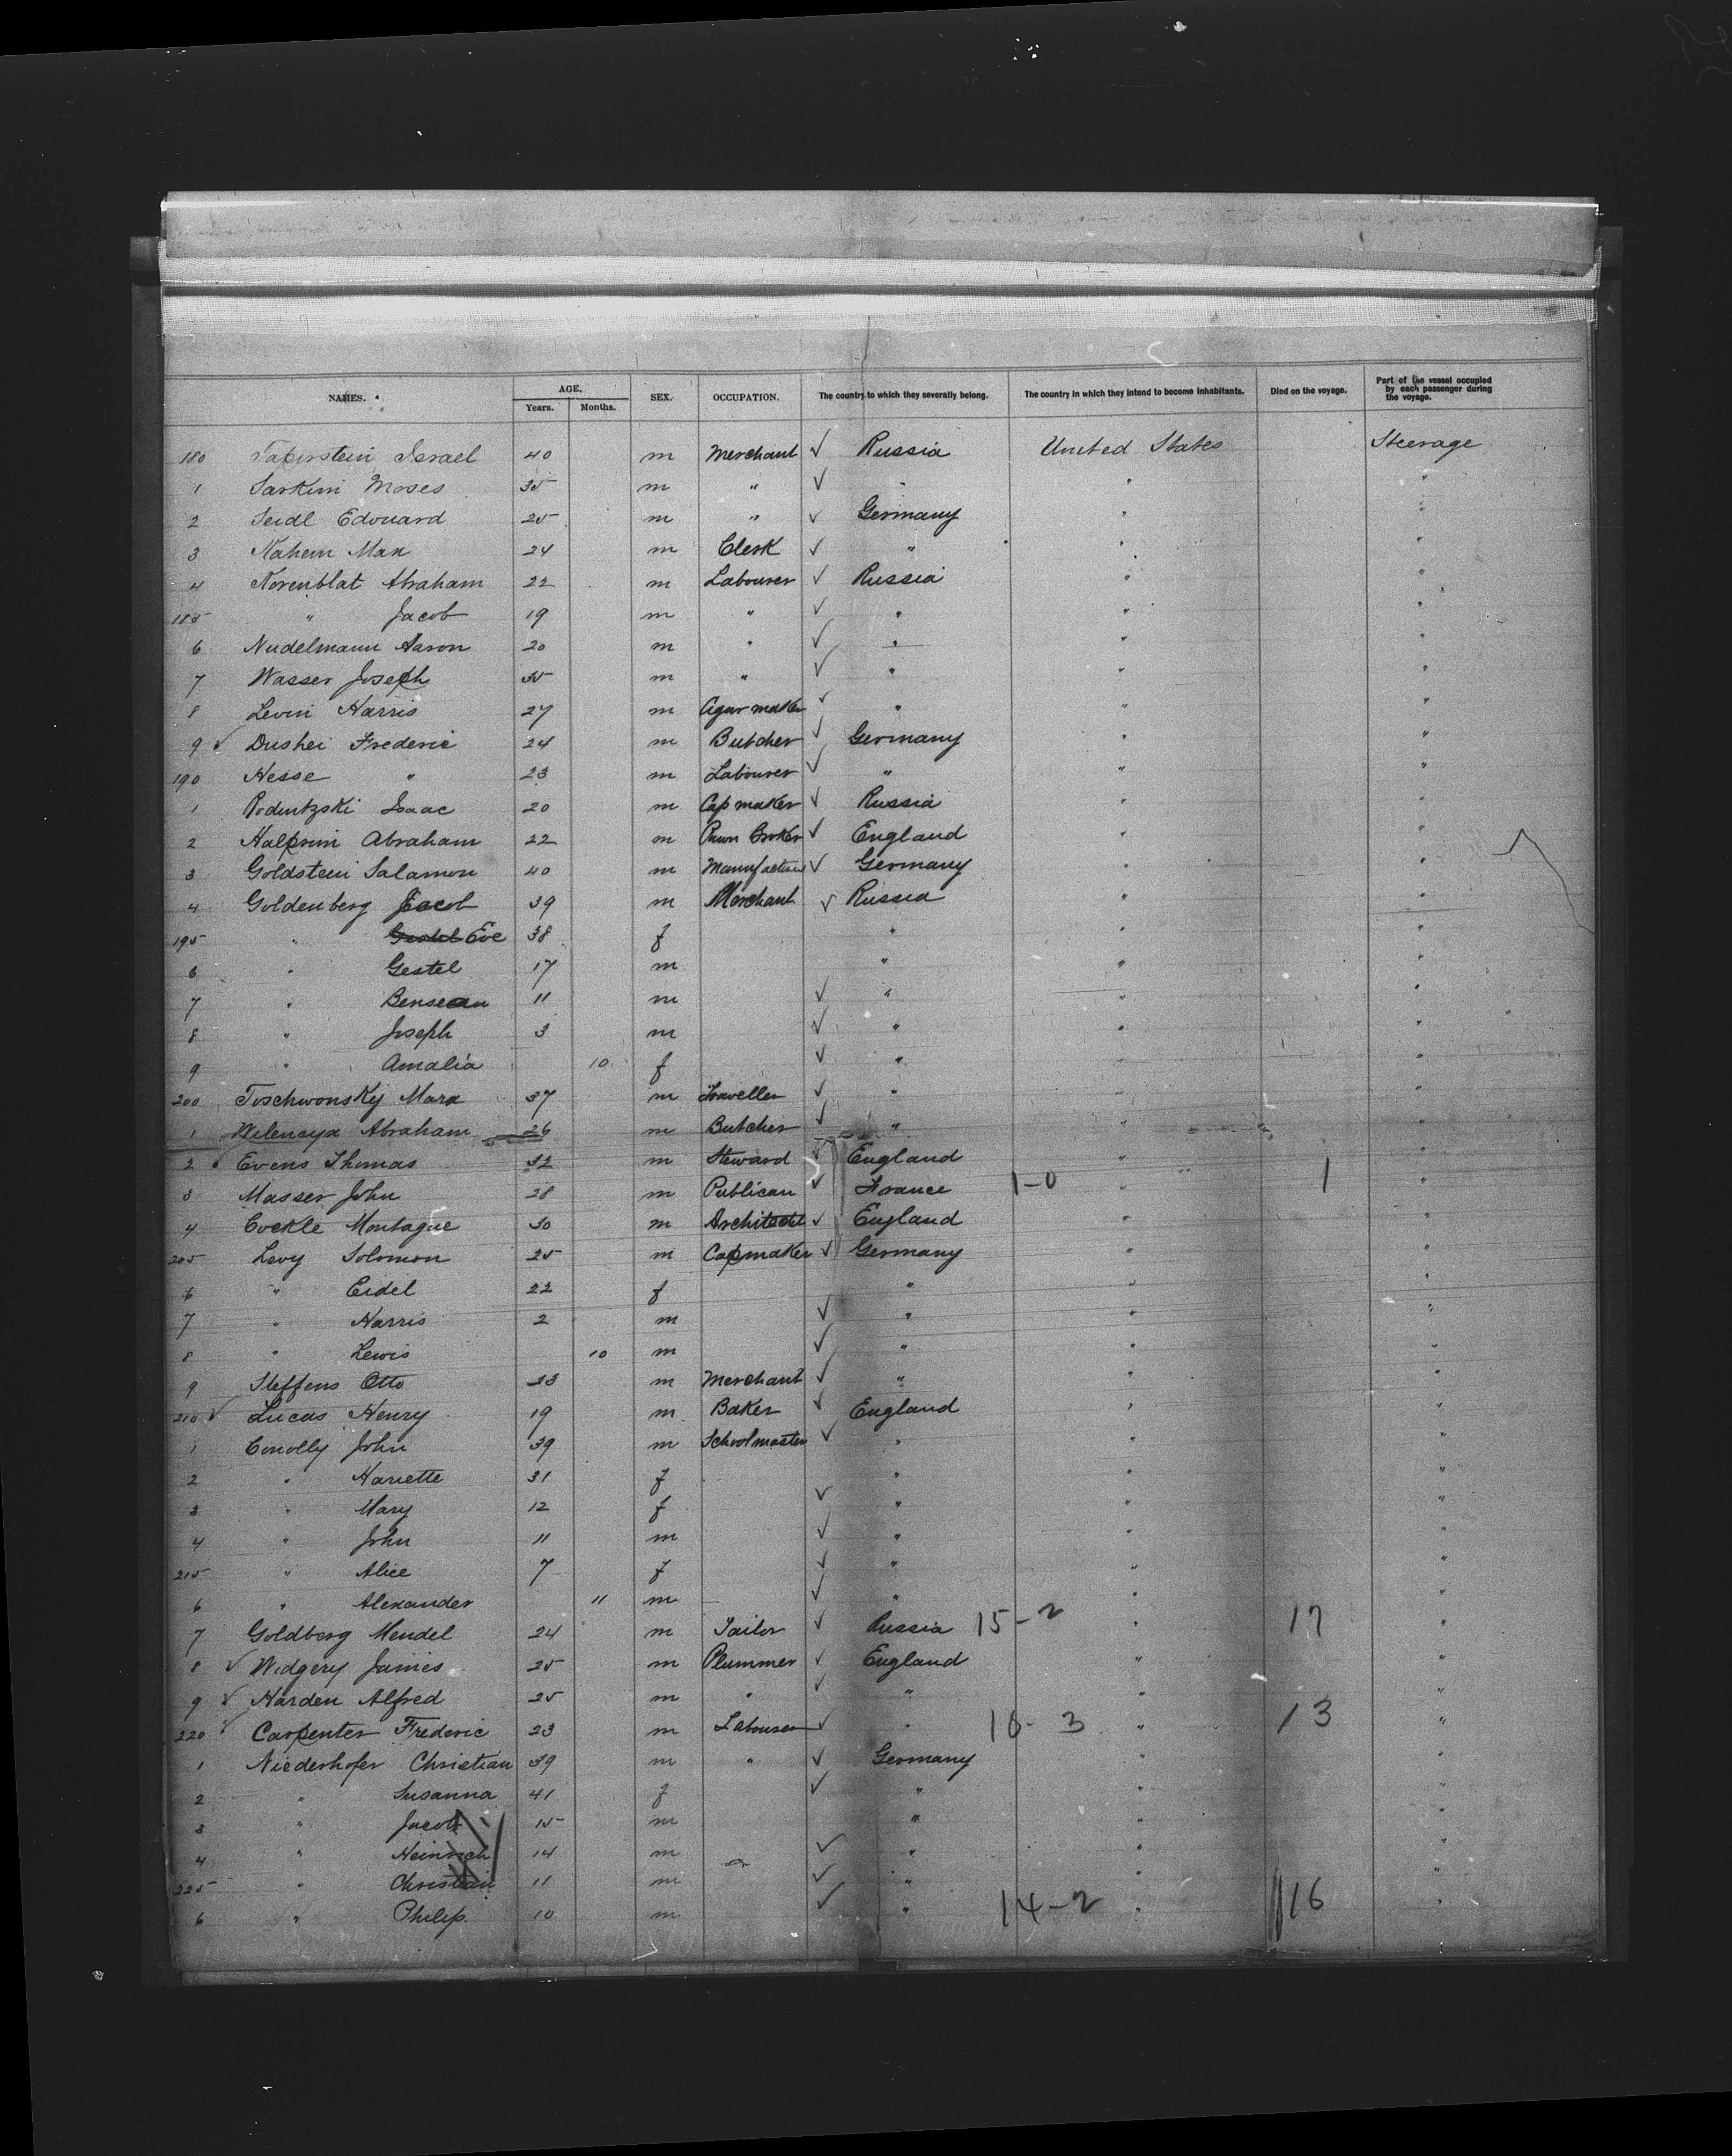 NAMES. AGE. Years. Months. SEX. OCCUPATION. The country to which they severally belong. The country in which they intend to become inhabitants. Died on the voyage. Part of the vessel occupied by each passenger during the voyage.
180 Israel 40 m Merchant ✓ Russia United States Steerage
1 Sarkini Moses 35 m " ✓ " " "
2 Seidl Edouard 25 m " ✓ Germany " "
3 Nahem Max 24 m Clerk ✓ " " "
4 Korenblat Abraham 22 m Labourer ✓ Russia " "
185 " Jacob 19 m " ✓ " " "
6 Nudelmann Aaron 20 m " ✓ " " "
7 Wasser Joseph 35 m " ✓ " " "
8 Levin Harris 27 m Cigar maker ✓ " " "
9 ✓ Dushei Frederic 24 m Butcher ✓ Germany " "
190 Hesse " 23 m Labourer ✓ " " "
1 Isaac 20 m Cap maker ✓ Russia " "
2 Halprim Abraham 22 m Pawn Broker ✓ England " "
3 Goldstein Salamon 40 m Manufacturer ✓ Germany " "
4 Goldenberg Jacob 39 m Merchant ✓ Russia " "
195 " Eve 38 f " " "
6 " Gestel 17 m " " "
7 " Bensean 11 m ✓ " " "
8 " Joseph 3 m ✓ " " "
9 " Amalia 10 f ✓ " " "
200 Toschwonsky Marx 37 m Traveller ✓ " " "
1 Abraham 26 m Butcher ✓ " " "
2 Evens Thomas 32 m Steward ✓ England " "
3 Masser John 28 m Publican ✓ France 1-0 " 1 "
4 Cockle Montague 30 m Architecht ✓ England " "
205 Levy Solomon 25 m Capmaker ✓ Germany " "
6 " Eidel 22 f " " "
7 " Harris 2 m ✓ " " "
8 " Lewis 10 m ✓ " " "
9 Steffens Otto 23 m Merchant ✓ " " "
210 ✓ Lucas Henry 19 m Baker ✓ England " "
1 Conolly John 39 m Schoolmaster ✓ " " "
2 " Hariette 31 f " " "
3 " Mary 12 f ✓ " " "
4 " John 11 m ✓ " " "
215 " Alice 7 f ✓ " " "
6 " Alexander 11 m ✓ " " "
7 Goldberg Mendel 24 m Tailor ✓ Russia 15-2 " 17 "
8 ✓ Widgery James 25 m Plummer ✓ England " "
9 ✓ Harden Alfred 25 m " ✓ " " "
220 ✓ Carpenter Frederic 23 m Labourer ✓ " 10-3 " 13 "
1 Niederhofer Christian 39 m " ✓ Germany " "
2 " Susanna 41 f ✓ " " "
3 " Jacob 15 m " " "
4 " Heinrich 14 m ✓ " " "
225 " Christian 11 m ✓ " " "
6 " Philip 10 m ✓ " 14-2 " 16 "